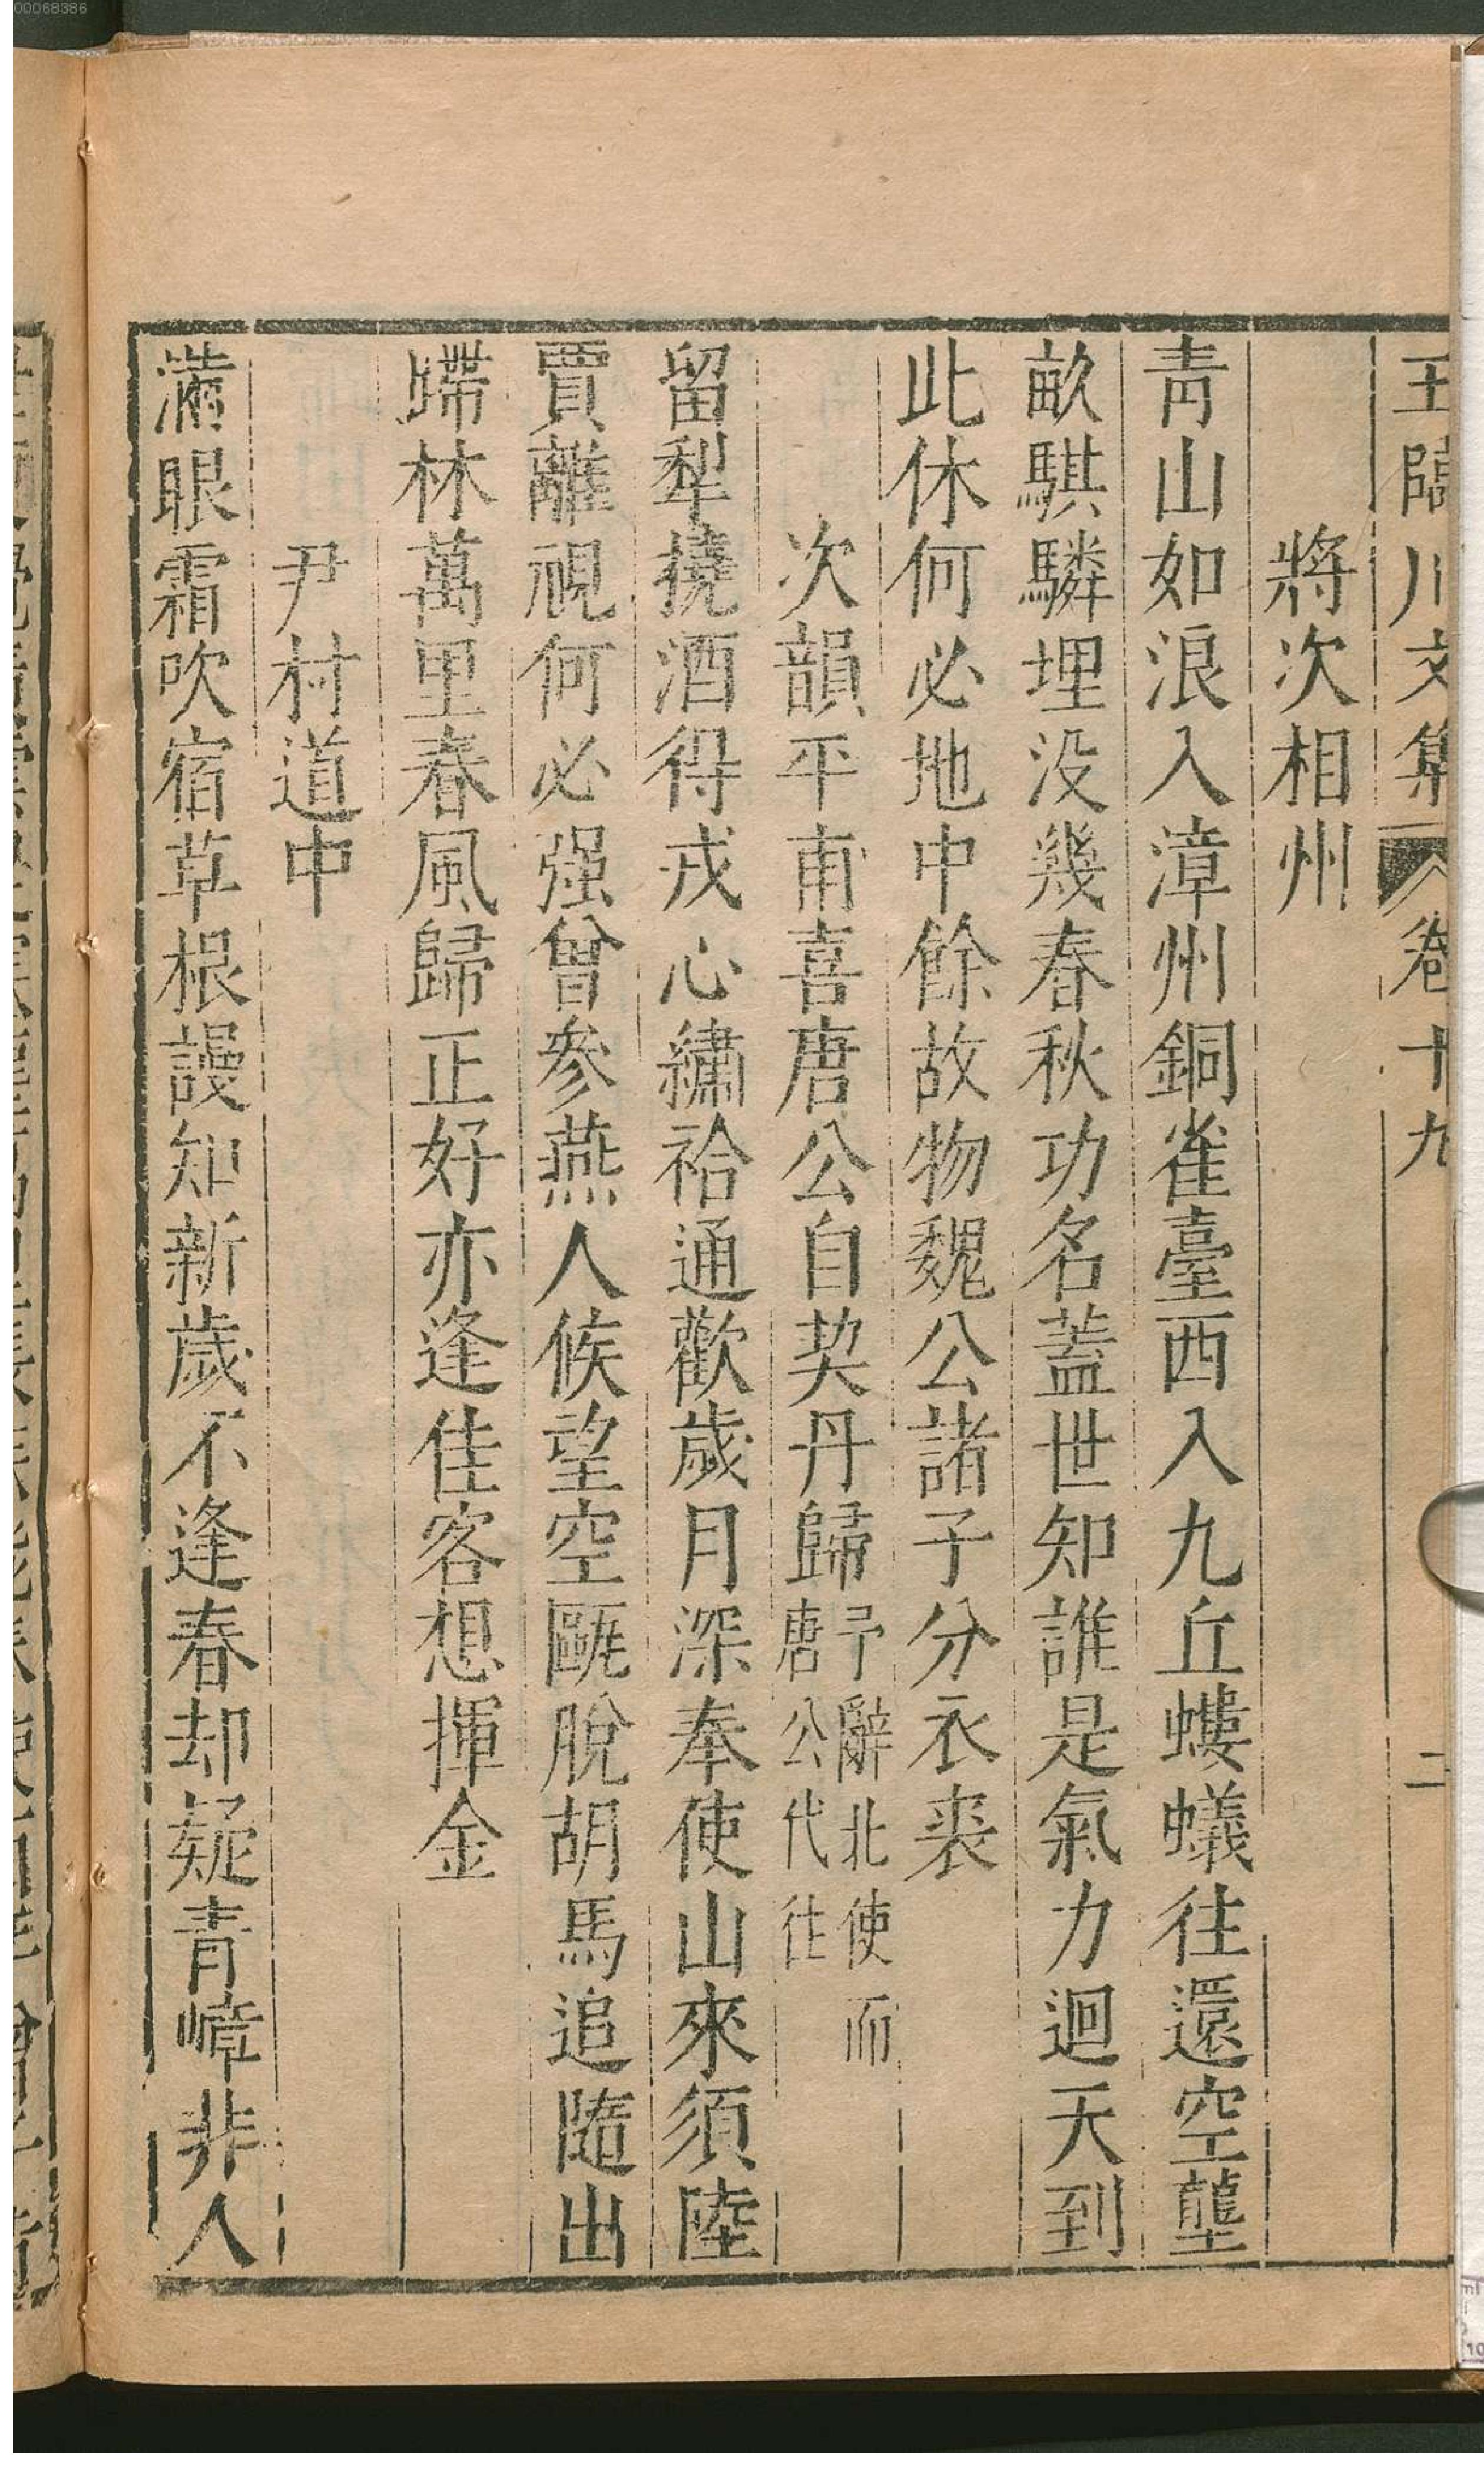 00068386
王臨川文集 卷十九 二
將次相州
青山如浪入漳州銅雀臺西八九丘螻蟻往還空壟
畝騏驎埋没幾春秋功名蓋世知誰是氣力迴天到
此休何必地中餘故物魏公諸子分衣裘
次韻平甫喜唐公自契丹歸予辭北使而唐公代往
留犁撓酒得戎心繡袷通歡歲月深奉使由來須陸
賈離親何必强曾參燕人候望空甌脫胡馬追隨出
蹛林萬里春風歸正好亦逢佳客想揮金
尹村道中
滿眼霜吹宿草根謾知新歲不逢春却疑青嶂非人